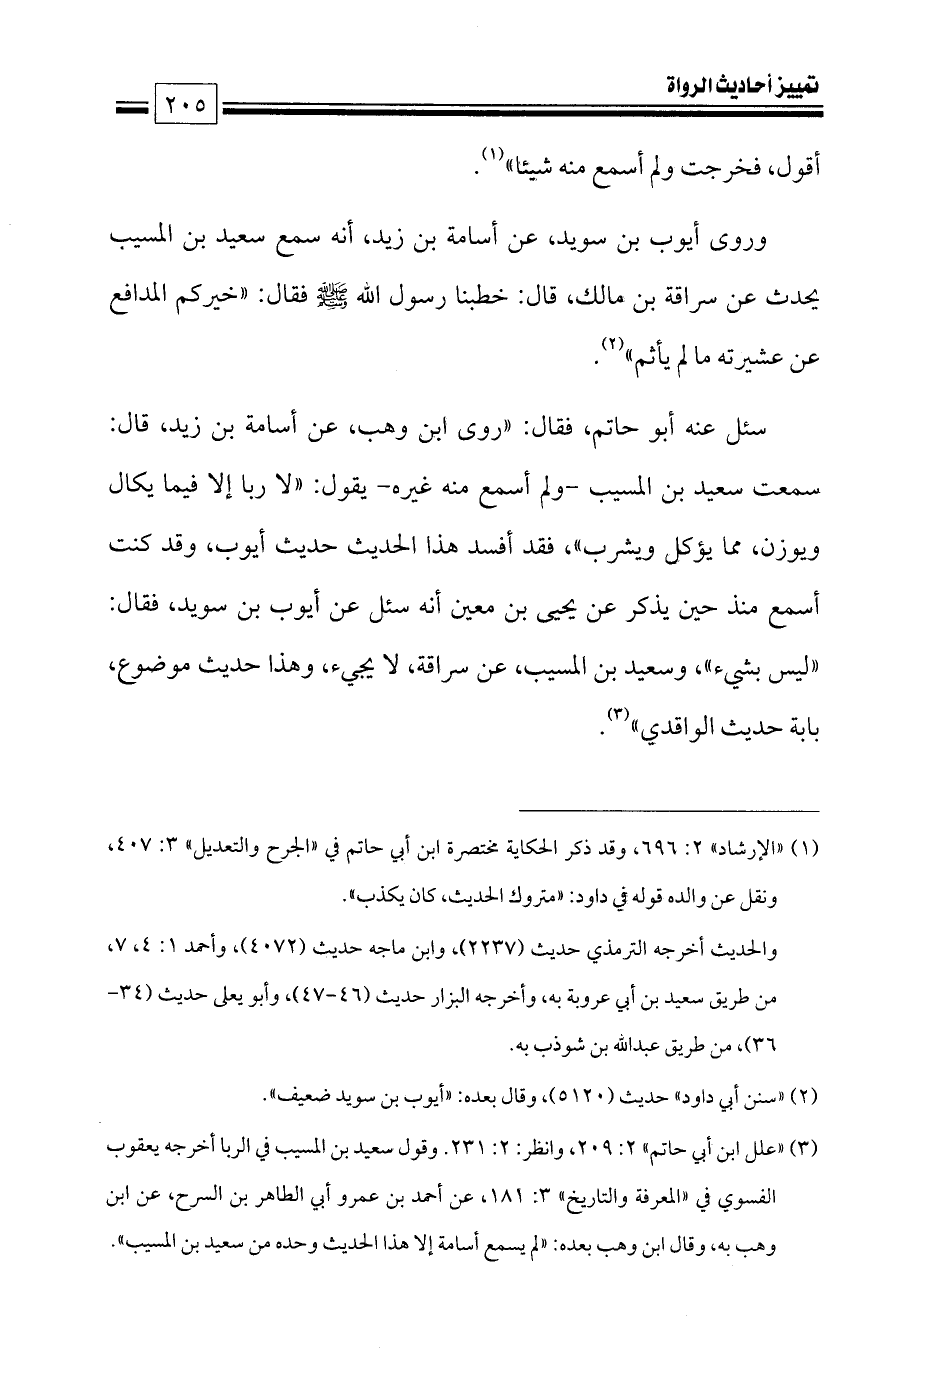 تمييز أحاديث الرواة
٢٠٥
أقول، فخرجت ولم أسمع منه شيئا»(١).
وروى أيوب بن سويد، عن أسامة بن زيد، أنه سمع سعيد بن المسيب
يحدث عن سراقة بن مالك، قال: خطبنا رسول الله ﷺ فقال: «خيركم المدافع
عن عشيرته ما لم يأثم»(٢).
سئل عنه أبو حاتم، فقال: «روى ابن وهب، عن أسامة بن زيد، قال:
سمعت سعيد بن المسيب -ولم أسمع منه غيره- يقول: «لا ربا إلا فيما يكال
ويوزن، مما يؤكل ويشرب»، فقد أفسد هذا الحديث حديث أيوب، وقد كنت
أسمع منذ حين يذكر عن يحيى بن معين أنه سئل عن أيوب بن سويد، فقال:
«ليس بشيء»، وسعيد بن المسيب، عن سراقة، لا يجيء، وهذا حديث موضوع،
بابة حديث الواقدي»(٣).
(١) «الإرشاد» ٢: ٦٩٦، وقد ذكر الحكاية مختصرة ابن أبي حاتم في «الجرح والتعديل» ٣: ٤٠٧،
ونقل عن والده قوله في داود: «متروك الحديث، كان يكذب».
والحديث أخرجه الترمذي حديث (٢٢٣٧)، وابن ماجه حديث (٤٠٧٢)، وأحمد ١: ٤، ٧،
من طريق سعيد بن أبي عروبة به، وأخرجه البزار حديث (٤٦-٤٧)، وأبو يعلى حديث (٣٤-
٣٦)، من طريق عبدالله بن شوذب به.
(٢) «سنن أبي داود» حديث (٥١٢٠)، وقال بعده: «أيوب بن سويد ضعيف».
(٣) «علل ابن أبي حاتم» ٢: ٢٠٩، وانظر: ٢: ٢٣١. وقول سعيد بن المسيب في الربا أخرجه يعقوب
الفسوي في «المعرفة والتاريخ» ٣: ١٨١، عن أحمد بن عمرو أبي الطاهر بن السرح، عن ابن
وهب به، وقال ابن وهب بعده: «لم يسمع أسامة إلا هذا الحديث وحده من سعيد بن المسيب».